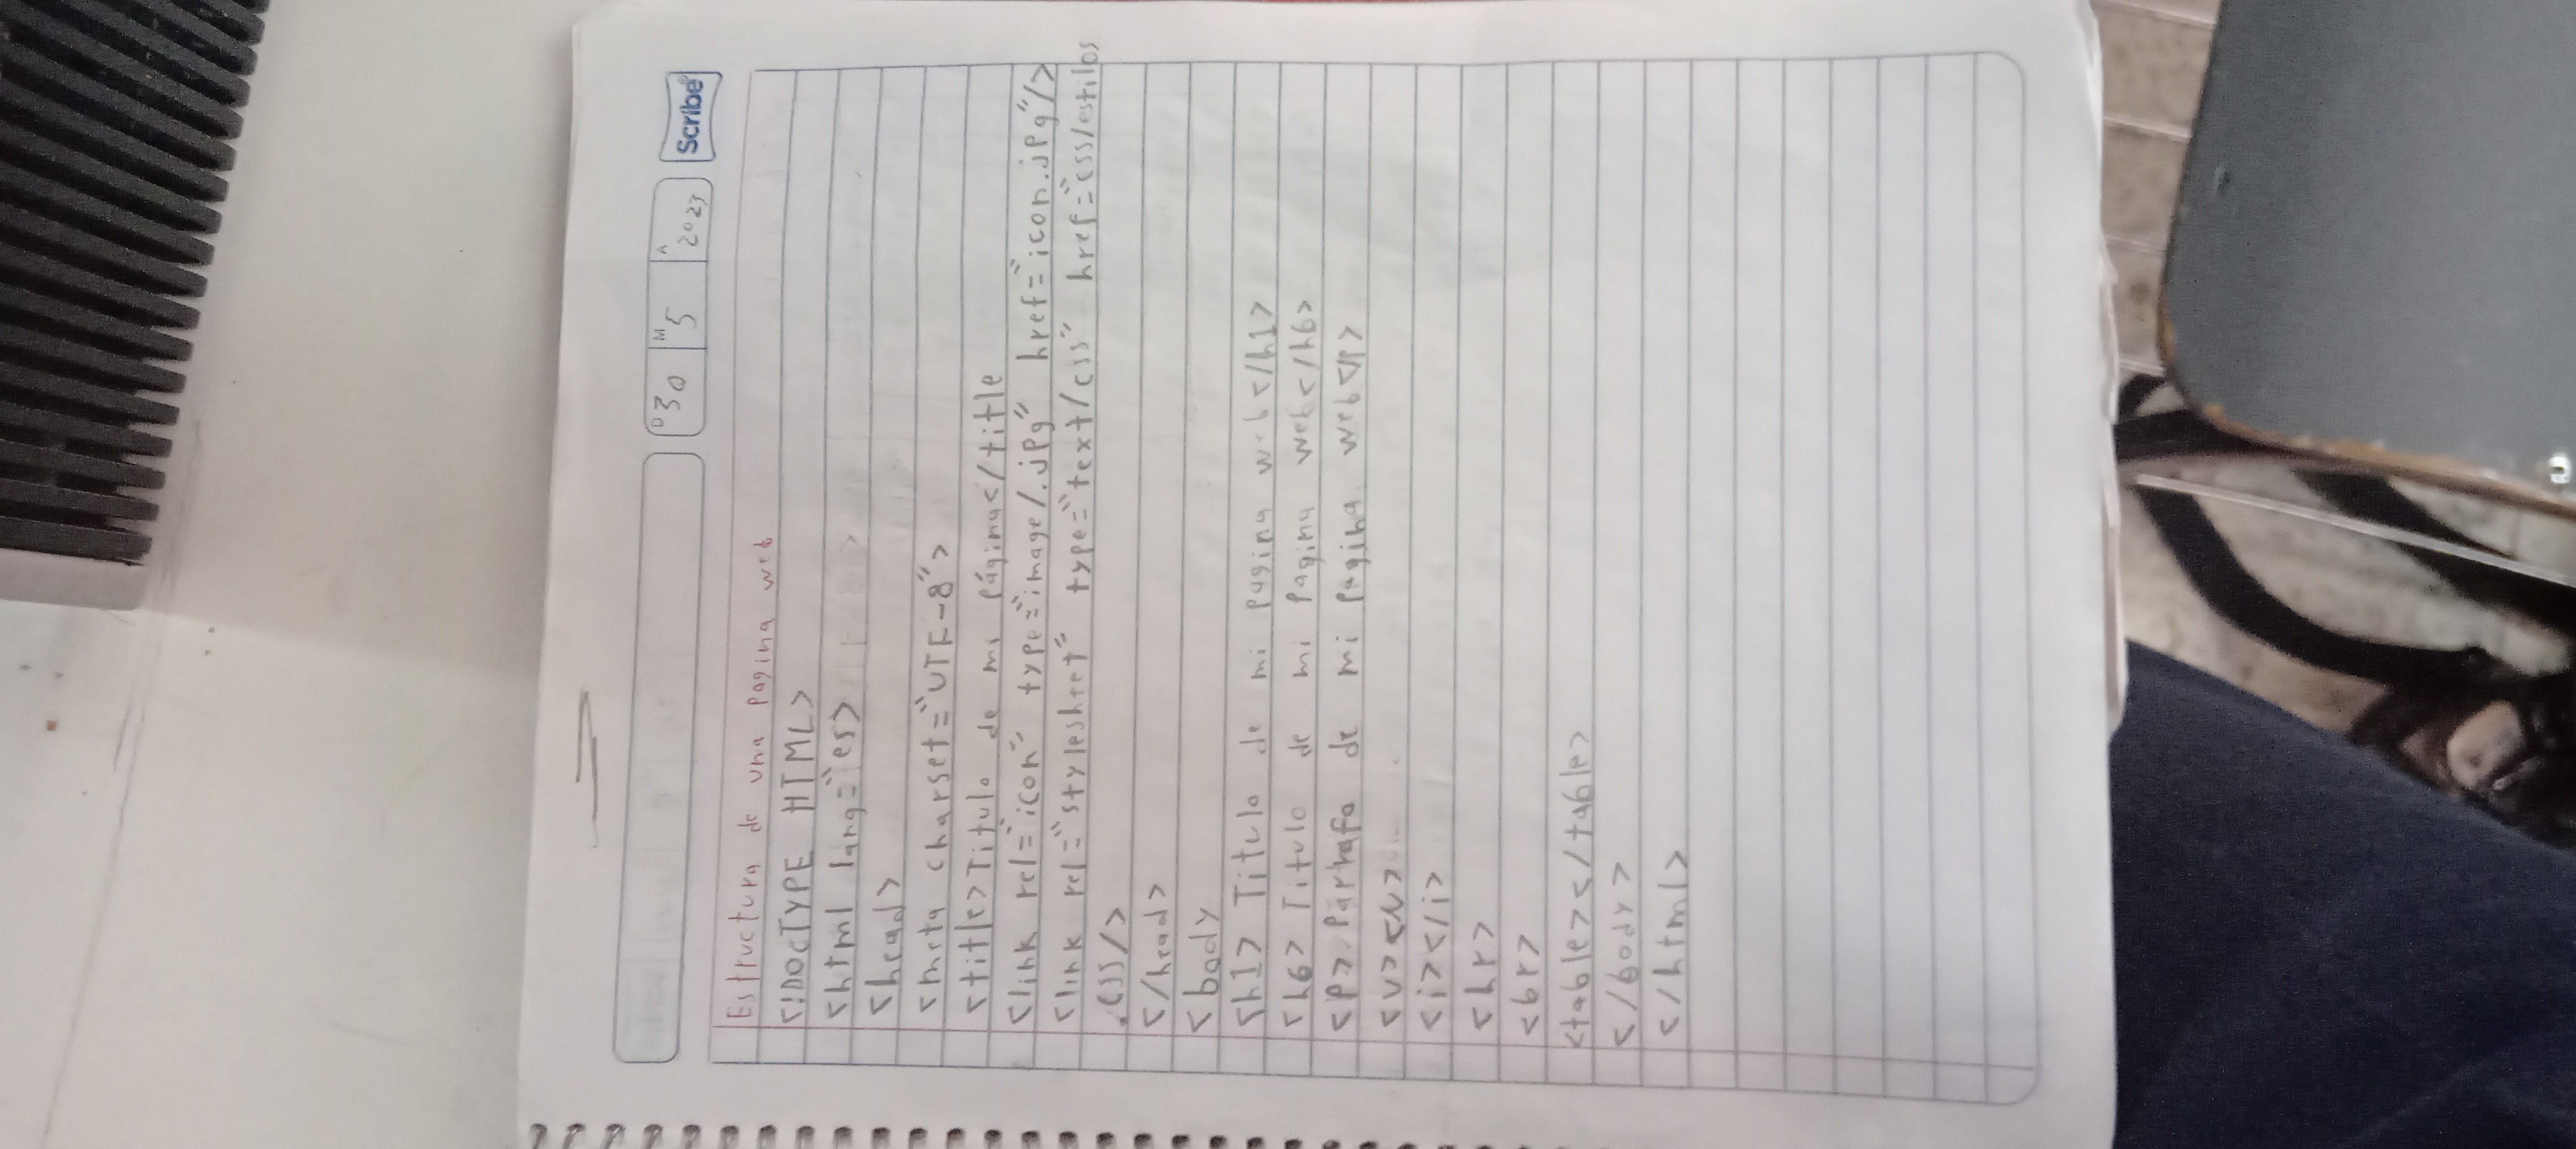 Scribe
D 30 M 5 A 2023
Estructura de una pagina web
<!DOCTYPE HTML>
<html lang="es>
<head>
<meta charset="UTF-8">
<title>Titulo de mi página</title
<link rel="icon" type="image/.jpg" href="icon.jpg"/>
<link rel="stylesheet" type="text/css" href="css/estilos
.css/>
</head>
<body
<h1> Titulo de mi pagina web</h1>
<h6> Titulo de mi pagina web</h6>
<p> Parrafo de mi pagina web</p>
<u></u>
<i></i>
<hr>
<br>
<table></table>
</body>
</html>